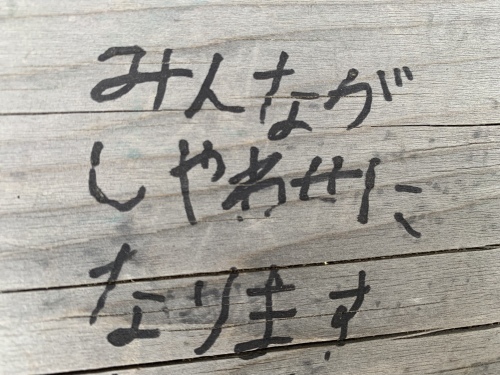 みんなが
しやわせに
なります